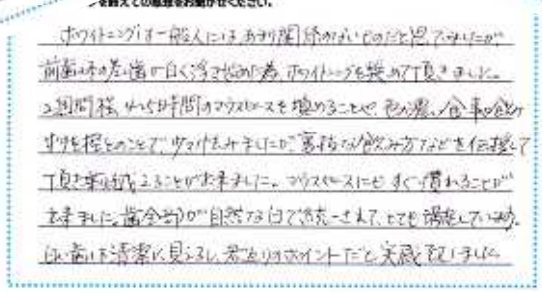 を終えての感想をお聞かせください。
ホワイトニングは一般人には、あまり関係のないものだと思っていましたが
前歯の差し歯が白く浮き始めた為、ホワイトニングを奨めて頂きました。
2週間程、4〜5時間のマウスピースを填めることや、色の濃い食事や飲み
とのことで、少々 ましたが、 な飲み方などを伝授して
頂き乗り越えることが出来ました。マウスピースにもすぐ慣れることが
出来ました。歯全部が自然な白で統一されて、とても満足しています。
白い歯は清潔に見えるし、若返りのポイントだと実感致しました